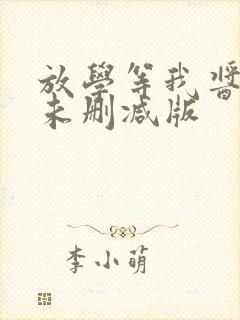 放學等我醬
未刪减版
李小萌